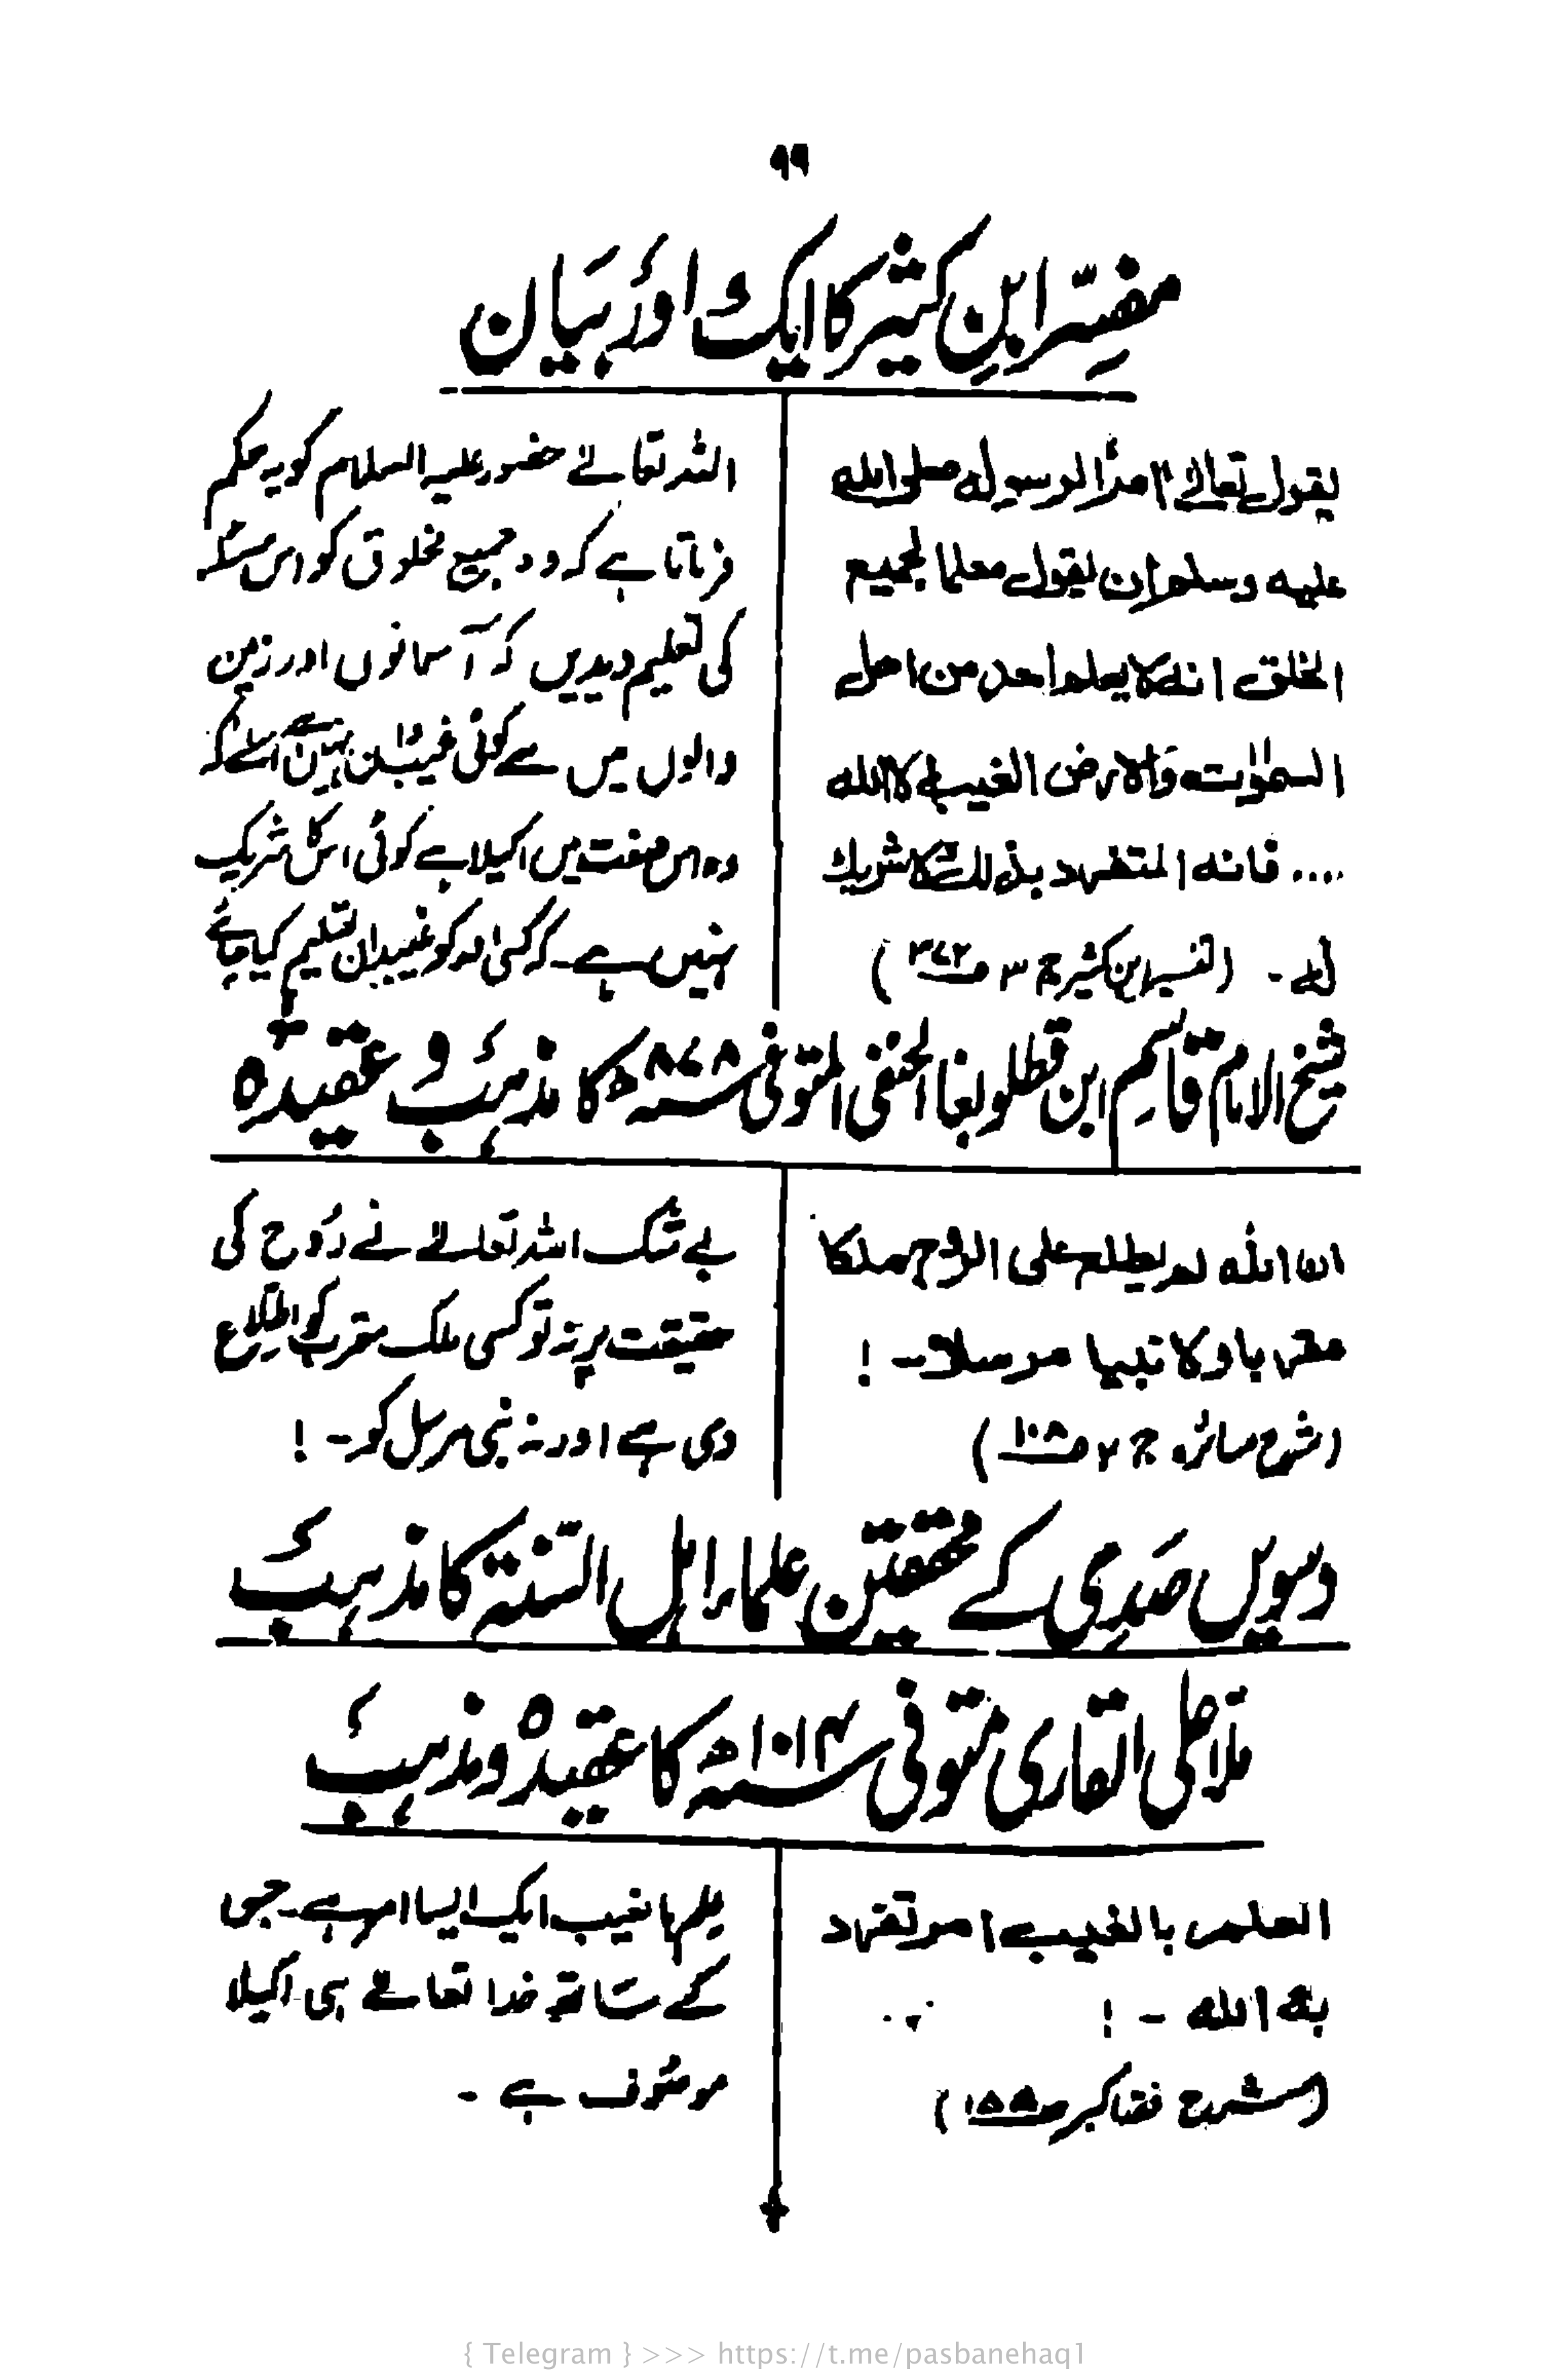 مفسّر ابنِ کثیر کا ایک اور بیان
یقول تعالیٰ امرًا لرسوله صلی الله
علیه وسلم ان یقول معلما لجمیع
الخلق انه لا یعلم احد من اهل
السمٰوٰت والارض الغیب الا الله
.... فانه المتفرد بذالك لا شریك
له - (تفسیر ابن کثیر ج ۳ ص۳۷۲)
اللہ تعالےٰ حضور علیہ السلام کو یہ حکم
فرماتا ہے کہ وہ جمیع مخلوق کو اس مسئلہ
کی تعلیم دیدیں کہ آسمانوں اور زمین
والوں میں سے کوئی غیب دان نہیں ہے اسلئے کہ
وہ اس صفت میں اکیلا ہے کوئی اس کا شریک
نہیں ہے۔ کہ کسی اور کو غیب دان تسلیم کیا جائے
شیخ الامام قاسم ابن قطلوبغا الحنفی المتوفی سنہ ۸۷۸ھ کا مذہب و عقیدہ
ان الله لم یطلع علی الروح ملكا
مقربا ولا نبیا مرسلا۔ !
(شرح مسائرہ ج ۲ ص۱۰۸)
بے شک اللہ تعالےٰ نے رُوح کی
حقیقت پر نہ تو کسی ملک مقرب کو اطلاع
دی ہے اور نہ نبی مرسل کو۔ !
دسویں صدی کے محققین علماء اہل السنۃ کا مذہب
ملا علی القاری متوفی سنہ ۱۰۱۴ھ کا عقیدہ و مذہب
العلم بالغیب امر تفرد
به الله - !
(شرح فقہ اکبر ص۱۵۵)
علم بالغیب ایک ایسا امر ہے۔ جس
کے ساتھ خدا تعالےٰ ہی اکیلا
موصوف ہے۔
{ Telegram } >>> https://t.me/pasbanehaq1